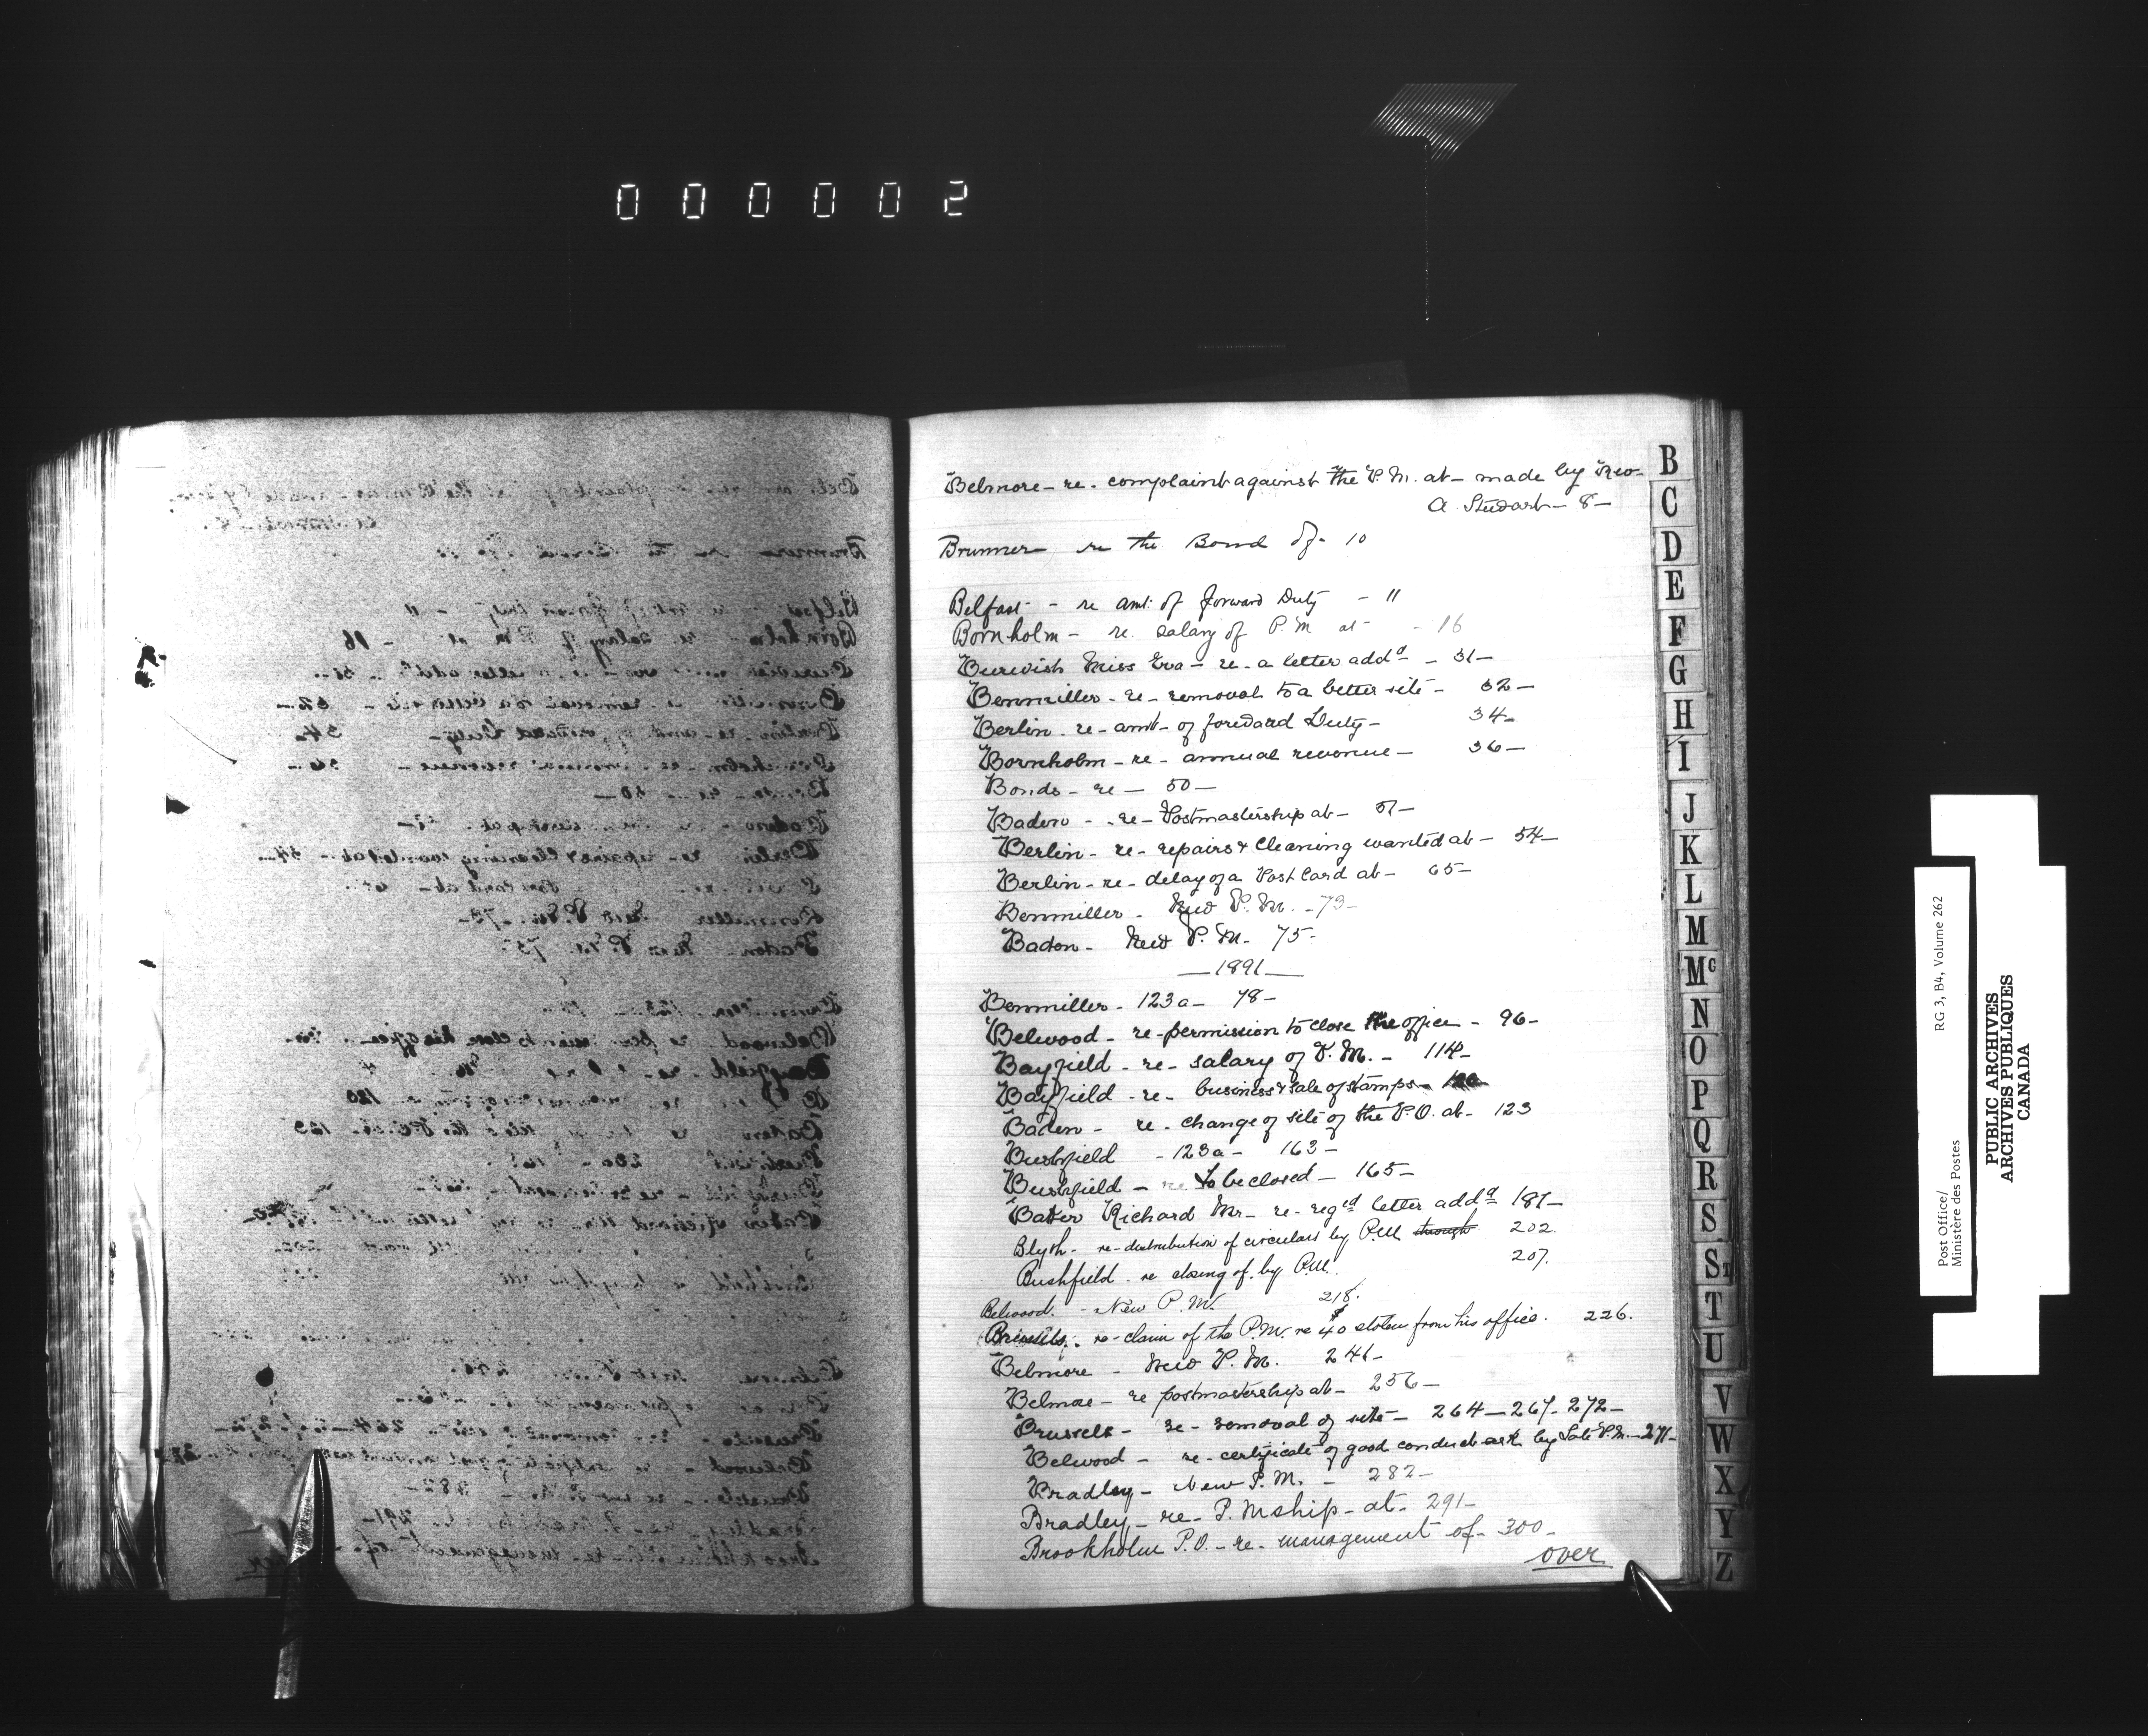 000002
Belmore - re - complaint against the P.M. at - made by Rev
A. Stewart - 8 -
Brunner re the Bond of - 10
Belfast - re amt. of forward Duty - 11
Bornholm - re. salary of P.M at - 16
Miss Eva - re - a letter addd - 31 -
Benmiller - re - removal to a better site - 32 -
Berlin - re - amt - of forward Duty - 34 -
Bornholm - re - annual revenue - 36 -
Bonds - re - 50 -
Baden - re - Postmastership at - 51 -
Berlin - re - repairs & Cleaning wanted at - 54 -
Berlin - re - delay of a Post Card at - 65 -
Benmiller - New P.M. - 73 -
Baden - New P.M. 75 -
— 1891 —
Benmiller - 123a - 78 -
Belwood - re - permission to close the office - 96 -
Bayfield - re - salary of P.M. - 114 -
Bayfield - re - business & sale of stamps - 120
Baden - re - change of site of the P.O. at - 123
Bushfield - 123a - 163 -
Bushfield - re to be closed - 165 -
Baker Richard Mr - re - reged letter addd 181 -
Blyth - re - distribution of circulars by P.M. through 202.
Bushfield - re closing of by P.M. 207.
Belwood. - New P.M. 218.
Brussels. re - claim of the P.M. re $40 stolen from his office. 226.
Belmore - New P.M. 241 -
Belmore - re postmastership at - 256 -
Brussels - re - removal of site - 264 - 267 - 272 -
Belwood - re - certificate of good conduct ask by Late P.M. - 271 -
Bradley - New P.M. - 282 -
Bradley - re - P.Mship - at - 291 -
Brookholm P.O. - re - management of - 300 -
over
B
C
D
E
F
G
H
I
J
K
L
M
Mc
N
O
P
Q
R
S
St
T
U
V
W
X
Y
Z
Post Office/ RG 3, B4, Volume 262
Ministère des Postes
PUBLIC ARCHIVES
ARCHIVES PUBLIQUES
CANADA